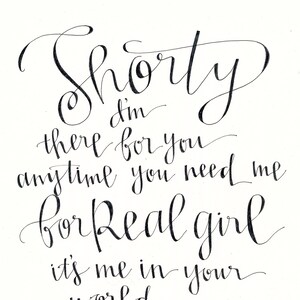 Shorty
I'm
there for you
anytime you need me
for Real girl
it's me in your
world